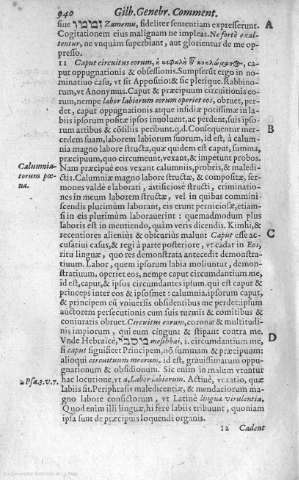 940 Gilb. Genebr. Comment.
siue זממו Zamemu, fideliter sententiam expresserunt. A
Cogitationem eius malignam ne impleas. Ne forte exal-
tentur, ne vnquam superbiant, aut glorientur de me op-
presso.
11 Caput circuitus eorum,
nu oppugnationis & obsessionis. Sumpserūt ergo in no-
minatiuo casu, vt sit Appositio: & sic plerique. Rabbino-
rum, vt Anonymus. Caput & præcipuum circuitionis eo-
rum, nempe labor labiorum eorum operiet eos, obruet, per-
det, caput oppugnationis atque insidiæ potissimæ in la-
biis ipsorum positæ ipsos inuoluent, ac perdent, suis ipso-
rum artibus & cōsiliis peribunt. q.d. Consequentur mer- B
cedem suam, laborem labiorum suorum, id est, à calum-
nia magno labore structa, quæ quidem est caput, summa,
præcipuum, quo circumeunt, vexant, & impetunt probos.
Calumnia-
torum pœ-
na.
Nam præcipuè eos vexant calumniis, probris, & maledi-
ctis. Calumniæ magno labore structæ, & compositæ, ser-
mones valdè elaborati, artificiosè structi, criminatio-
nes in meum laborem structæ, vel in quibus commini-
scendis plurimùm laborant, eis erunt perniciosæ, etiam-
si in eis plurimùm laborauerint: quemadmodum plus
laboris est in mentiendo, quàm veris dicendis. Kimhi, &
recentiores alieniùs & obscuriùs malunt Caput esse ac- C
cusatiui casus, & regi à parte posteriore, vt cadat in Eos,
ritu linguæ, quo res demonstrata antecedit demonstra-
tiuum. Labor, quem ipsorum labia mouistur, demon-
stratiuum, operiet eos, nempe caput circumdantium me,
id est, caput, & ipsos circumdantes ipsum. qui est caput &
princeps inter eos & ipsosmet: calumnia. ipsorum caput,
& principem cū vniuersis obsidentibus me perdet. ipsum
auctorem persecutionis cum suis turmis & comitibus &
coniuratis obruet. Circuitum eorum, coronæ & multitudi-
nis impiorum, qui eum cingunt & stipant contra me. D
Vnde Hebraicè, מסבי mesibbai, i. circumdantium me,
si caput significet Principem, nō summum & præcipuum
alioqui circuitorum meorum, id est, grauissimorum oppu-
gnationum & obsidionum. Sic enim in malum vtuntur
a Psa. 9. v. 7.
hac locutione, vt a, Labor labiorum. Actiuè, vt ratio, quæ
labiis fit. Periphrasis maledicentiæ, & mendaciorum ma-
gno labore consictorum, vt Latinè lingua virulentia.
Quod enim illi linguæ, hi ferè labiis tribuunt, quoniam
ipsa sunt de præcipuis loquendi organis.
12 Cadent